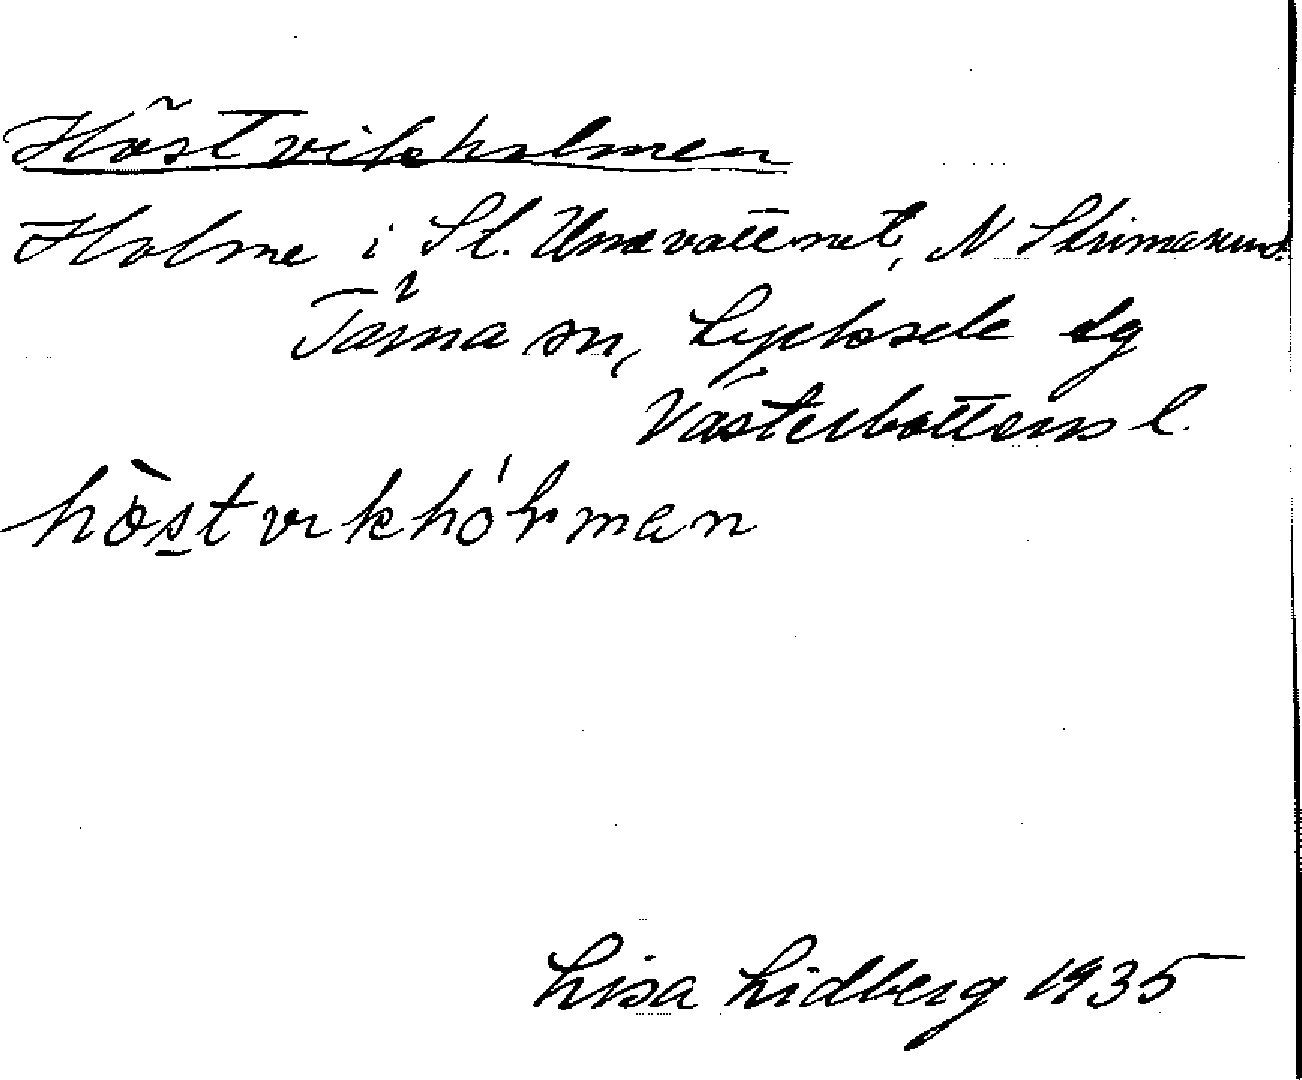 Höstvikholmen
Holme i St. Umevattnet, N Strimasund.
Tärna sn, Lycksele lg
Västerbottens l.
hòstvikhólman
Lisa Lidberg 1935